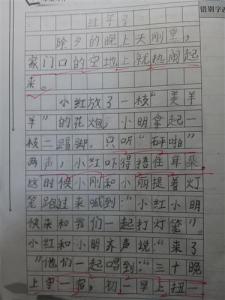 错别字
过年了
除夕的晚上天刚黑,
家门口的空地上就热闹起
来。
小红放了一枝"美羊
羊"的花炮,小明拿起一
枝二踢脚,只听"砰啪"
两声,小红吓得捂住耳朵
这时候小刚和小丽提着灯
笼跑过来喊到:"小红小明
快来和我们一起打灯笼"。
小红和小明齐声说:"来了
"他们一起唱到:"三十晚
上 一 ,初二早上扭一